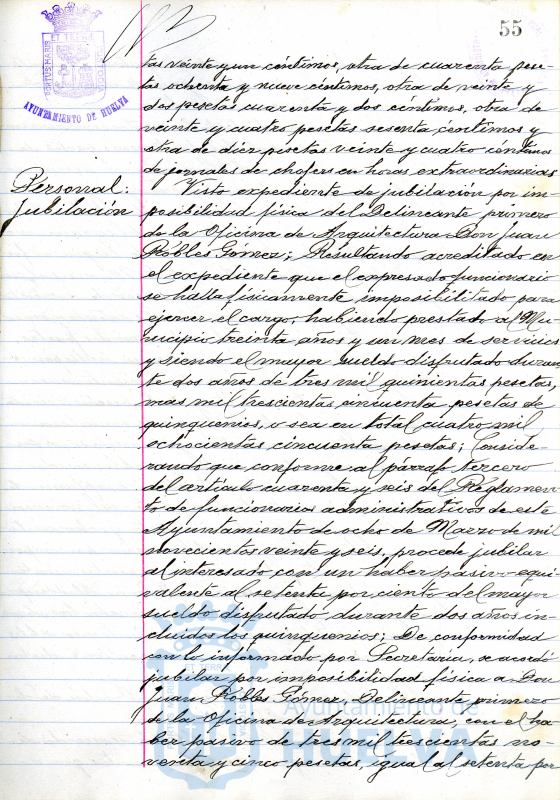 55
AYUNTAMIENTO DE HUELVA
tas veinte y un céntimos, otra de cuarenta pese-
tas ochenta y nueve céntimos, otra de veinte y
dos pesetas cuarenta y dos céntimos, otra de
veinte y cuatro pesetas sesenta céntimos y
otra de diez pesetas veinte y cuatro céntimos
de jornales de chofers en horas extraordinarias
Personal:
Jubilación
Visto expediente de jubilación por im
posibilidad física del Delineante primero
de la Oficina de Arquitectura Don Juan
Robles Gómez; Resultando acreditado en
el expediente que el expresado funcionario
se halla físicamente imposibilitado para
ejercer el cargo, habiendo prestado al Mu-
nicipio treinta años y un mes de servicios
y siendo el mayor sueldo disfrutado duran
te dos años de tres mil quinientas pesetas,
mas mil trescientas cincuenta pesetas de
quinquenios, o sea en total cuatro mil
ochocientas cincuenta pesetas; Conside-
rando que conforme al párrafo tercero
del artículo cuarenta y seis del Reglamen-
to de funcionarios administrativos de este
Ayuntamiento de ocho de Marzo de mil
novecientos veinte y seis, procede jubilar
al interesado con un haber pasivo equi
valente al setenta por ciento del mayor
sueldo disfrutado durante dos años in-
cluidos los quinquenios; De conformidad
con lo informado por Secretaria, se acordó
jubilar por imposibilidad física a Don
Juan Robles Gómez, Delineante primero
de la Oficina de Arquitectura, con el ha
ber pasivo de tres mil trescientas no-
venta y cinco pesetas, igual al setenta por
Ayuntamiento de
HUELVA